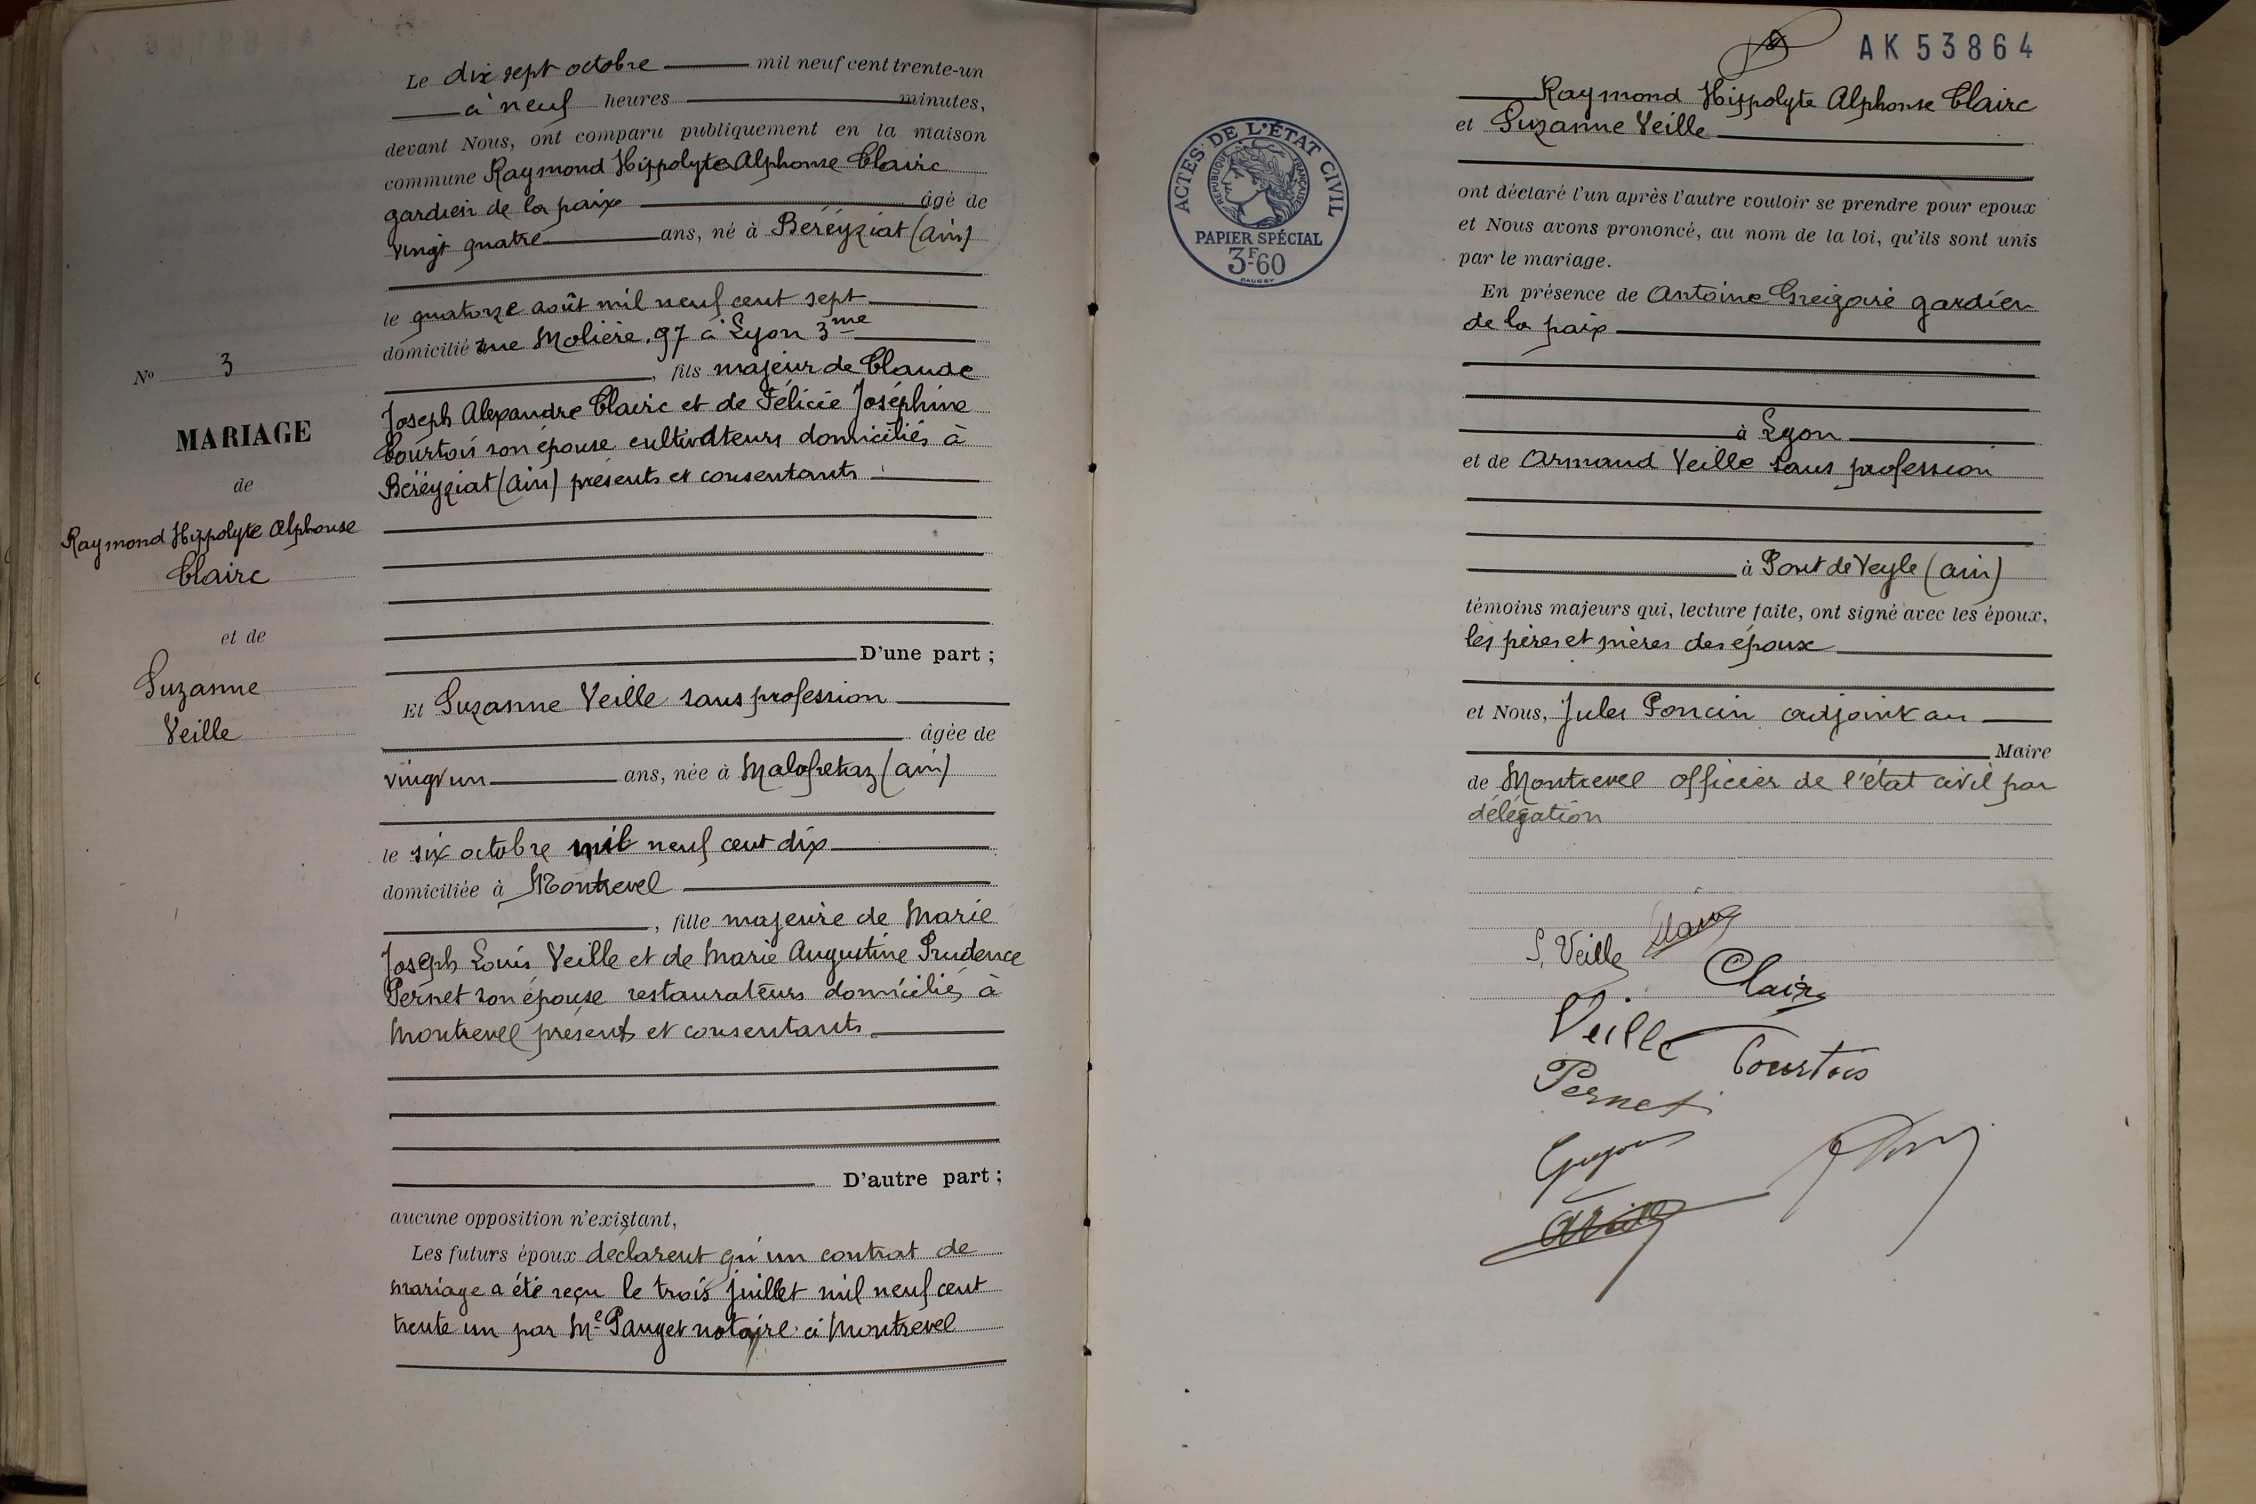 N° 3
MARIAGE
de
Raymond Hippolyte Alphonse
Clairc
et de
Suzanne
Veille
Le dix sept octobre mil neuf cent trente-un
à neuf heures minutes,
devant Nous, ont comparu publiquement en la maison
commune Raymond Hippolyte Alphonse Clairc
gardien de la paix âgé de
vingt quatre ans, né à Béréyziat (Ain)
le quatorze août mil neuf cent sept
domicilié rue Molière, 97 à Lyon 3me
, fils majeur de Claude
Joseph Alexandre Clairc et de Félicie Joséphine
Courtois son épouse cultivateurs domiciliés à
Béréyziat (Ain) présents et consentants
D'une part ;
Et Suzanne Veille sans profession
âgée de
vingt un ans, née à Malafretaz (Ain)
le six octobre mil neuf cent dix
domiciliée à Montrevel
, fille majeure de Marie
Joseph Louis Veille et de Marie Augustine Prudence
Pernet son épouse restaurateurs domiciliés à
Montrevel présents et consentants
D'autre part ;
aucune opposition n'existant,
Les futurs époux déclarent qu'un contrat de
mariage a été reçu le trois juillet mil neuf cent
trente un par Me Pauget notaire à Montrevel
AK 53864
ACTES DE L'ÉTAT CIVIL
RÉPUBLIQUE FRANÇAISE
PAPIER SPÉCIAL
3F60
Raymond Hippolyte Alphonse Clairc
et Suzanne Veille
ont déclaré l'un après l'autre vouloir se prendre pour epoux
et Nous avons prononcé, au nom de la loi, qu'ils sont unis
par le mariage.
En présence de Antoine Greigoire gardien
de la paix
à Lyon
et de Armand Veille sans profession
à Pont de Veyle (Ain)
témoins majeurs qui, lecture faite, ont signé avec les époux,
les pères et mères des époux
et Nous, Jules Poncin adjoint au
Maire
de Montrevel officier de l'état civil par
délégation
S. Veille
Clairc
Veille
Courtois
Pernet